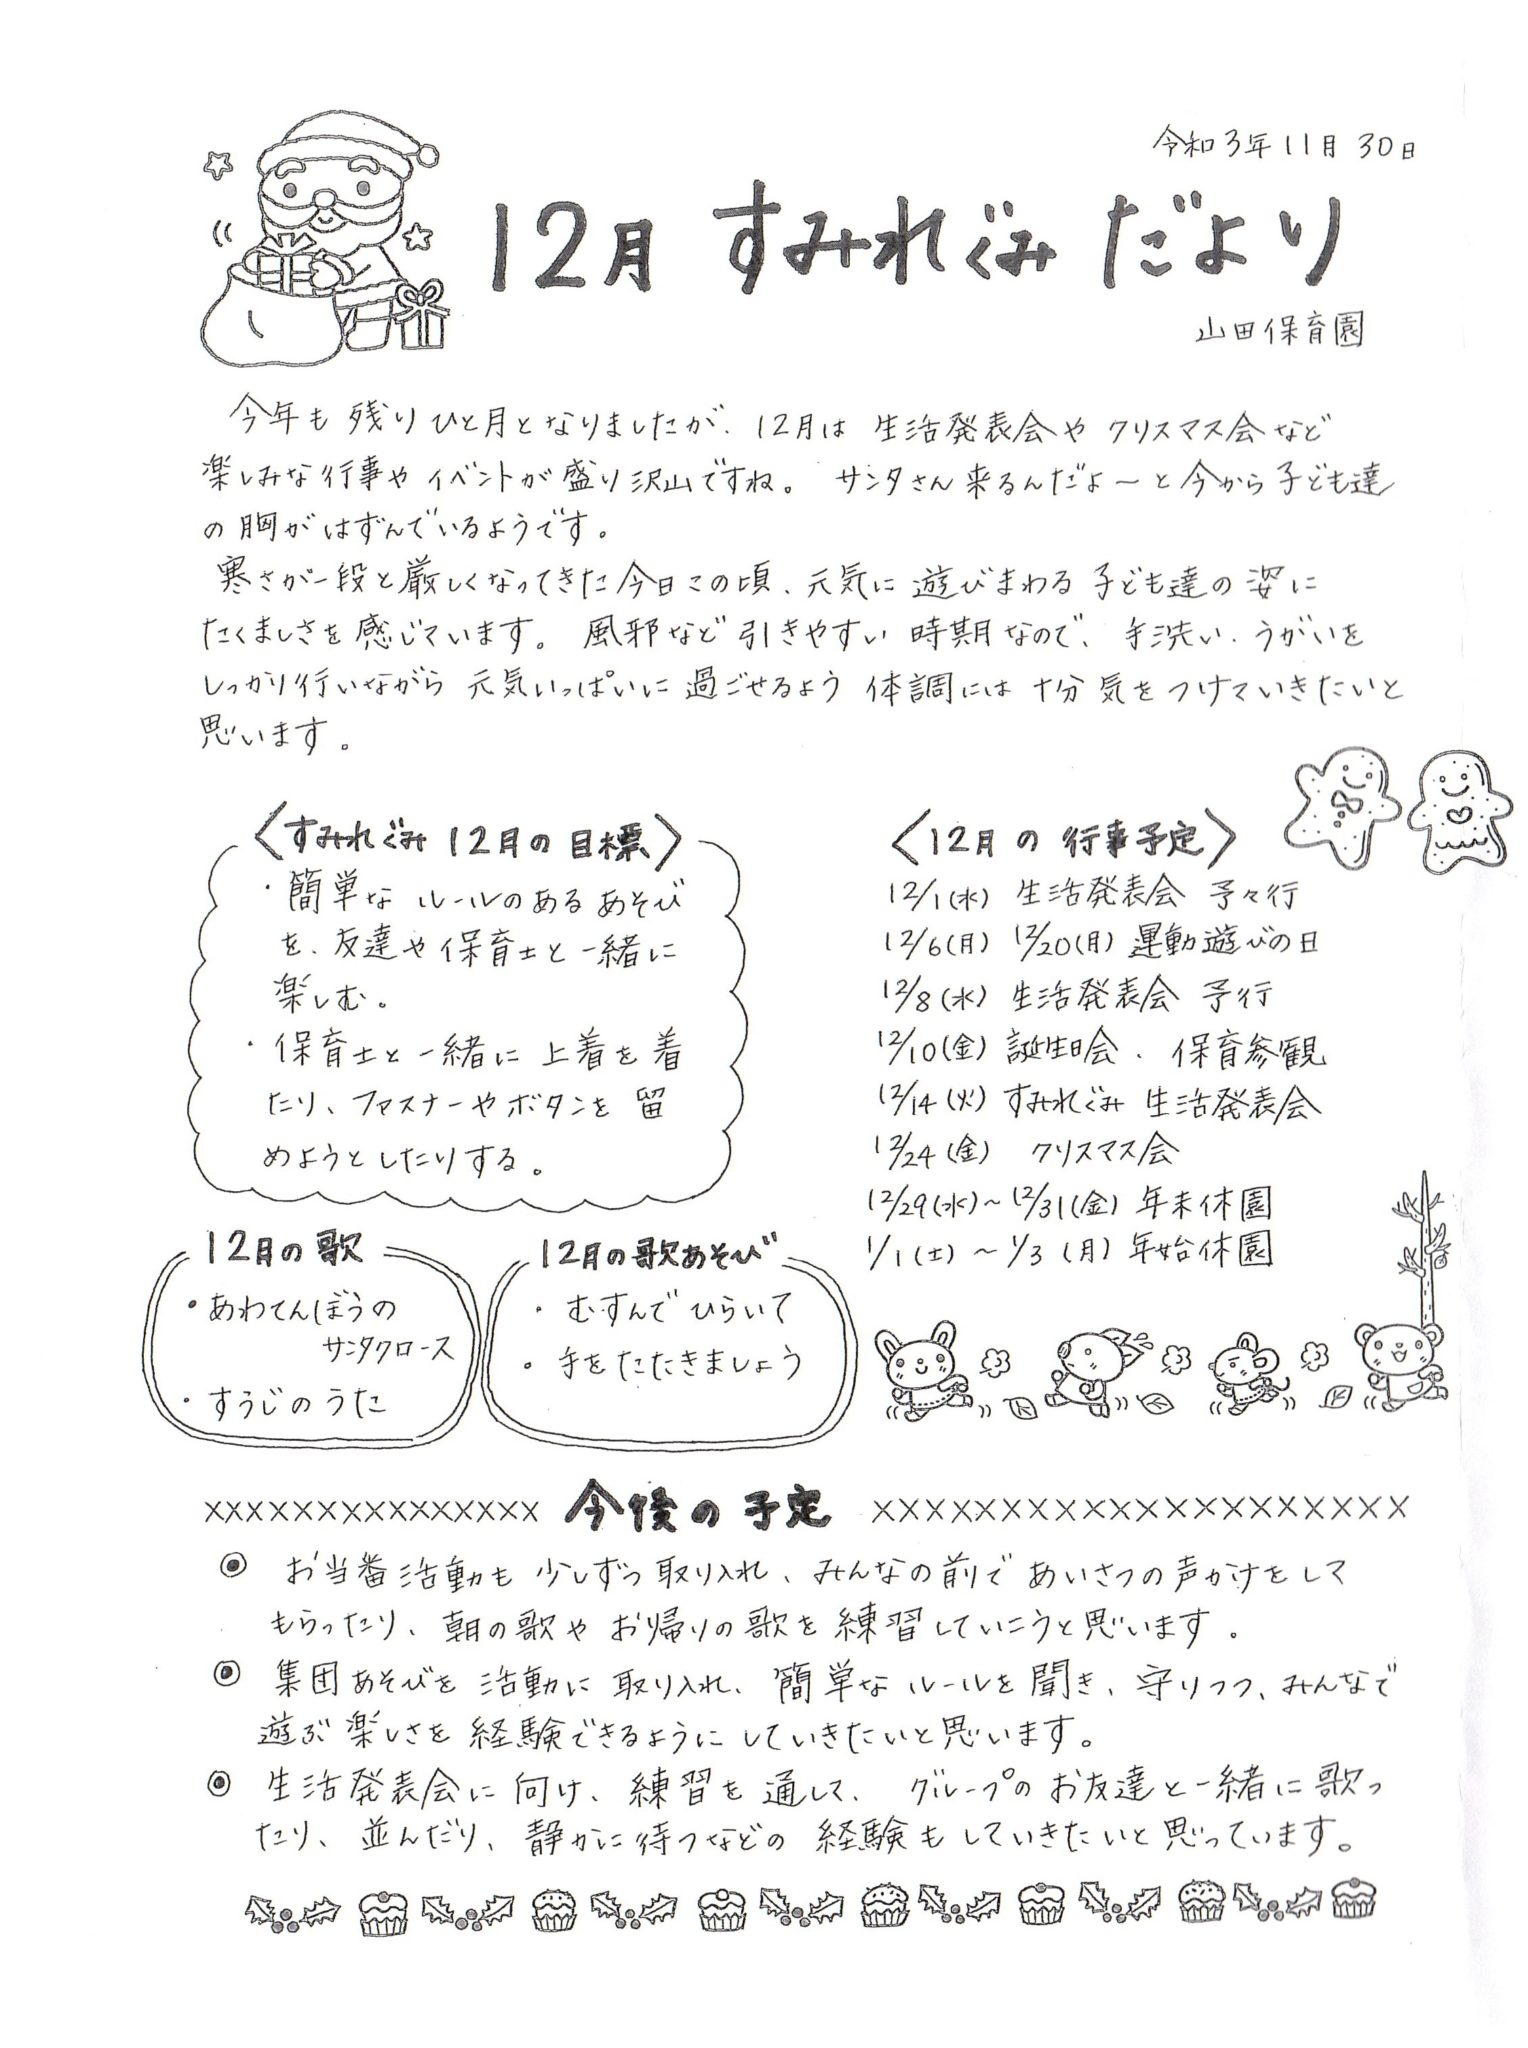 令和3年11月30日
12月 すみれぐみ だより
山田保育園
今年も残りひと月となりましたが、12月は生活発表会やクリスマス会など
楽しみな行事やイベントが盛り沢山ですね。 サンタさん来るんだよ～と今から子ども達
の胸がはずんでいるようです。
寒さが一段と厳しくなってきた今日この頃、元気に遊びまわる子ども達の姿に
たくましさを感じています。風邪など引きやすい時期なので、手洗い・うがいを
しっかり行いながら元気いっぱいに過ごせるよう体調には十分気をつけていきたいと
思います。
〈すみれぐみ 12月の目標〉
・簡単なルールのあるあそび
を、友達や保育士と一緒に
楽しむ。
・保育士と一緒に上着を着
たり、ファスナーやボタンを留
めようとしたりする。
〈12月の行事予定〉
12/1(水) 生活発表会 予々行
12/6(月) 12/20(月) 運動遊びの日
12/8(水) 生活発表会 予行
12/10(金) 誕生日会・保育参観
12/14(火) すみれぐみ 生活発表会
12/24(金) クリスマス会
12/29(水)～12/31(金) 年末休園
1/1(土)～1/3(月) 年始休園
12月の歌
・あわてんぼうの
サンタクロース
・すうじのうた
12月の歌あそび
・むすんでひらいて
・手をたたきましょう
××××××××××××××× 今後の予定 ×××××××××××××××××××××
◉ お当番活動も少しずつ取り入れ、みんなの前であいさつの声かけをして
もらったり、朝の歌やお帰りの歌を練習していこうと思います。
◉ 集団あそびを活動に取り入れ、簡単なルールを聞き、守りつつ、みんなで
遊ぶ楽しさを経験できるようにしていきたいと思います。
◉ 生活発表会に向け、練習を通して、グループのお友達と一緒に歌っ
たり、並んだり、静かに待つなどの経験もしていきたいと思っています。